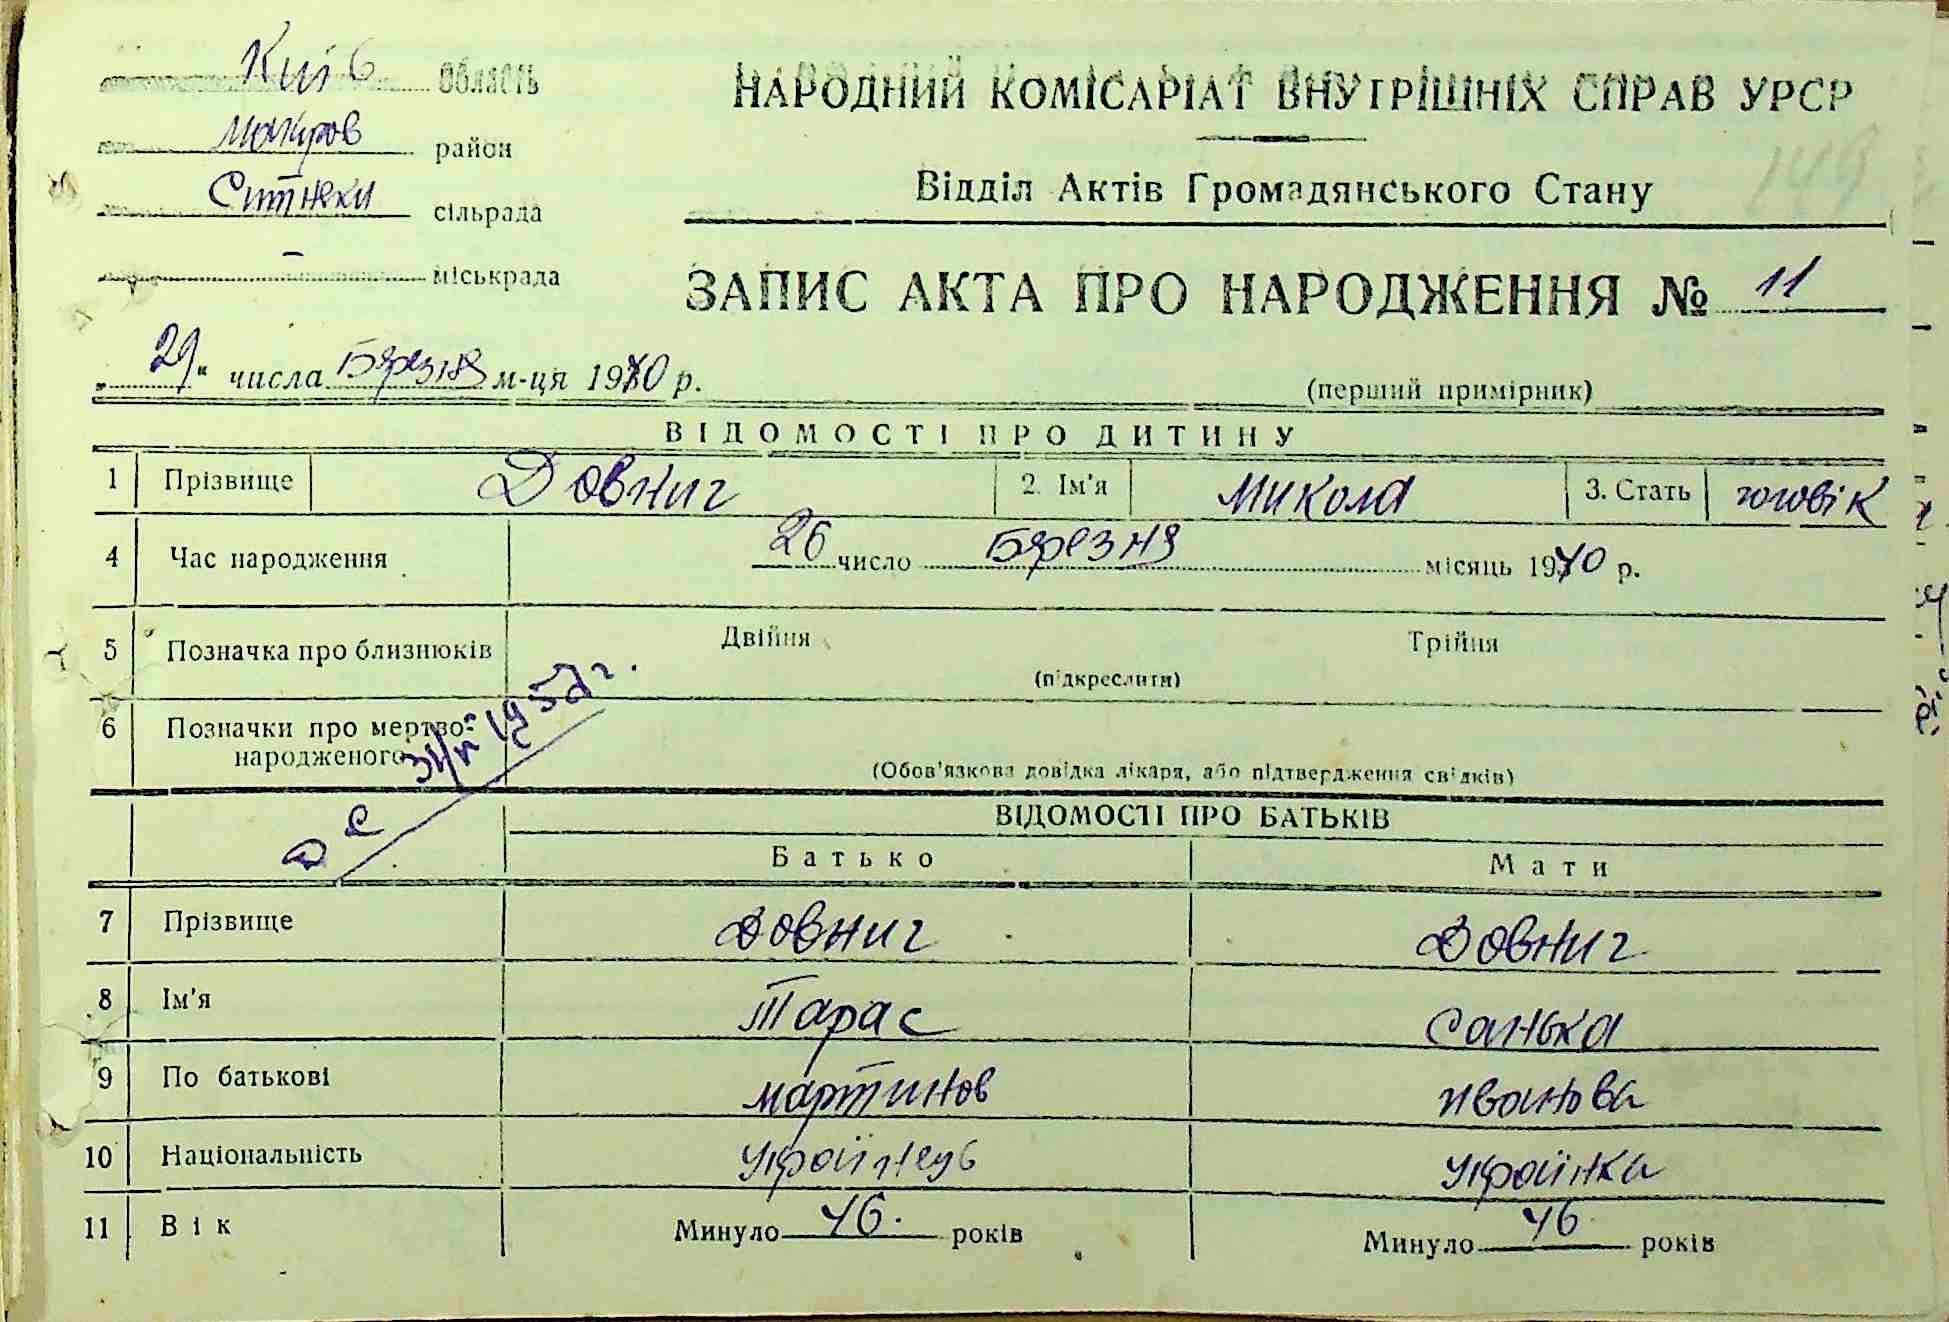 Київ область
Макаров район
Ситняки сільрада
– міськрада
149
НАРОДНИЙ КОМІСАРІАТ ВНУТРІШНІХ СПРАВ УРСР
Відділ Актів Громадянського Стану
ЗАПИС АКТА ПРО НАРОДЖЕННЯ № 11
„29" числа Бярезня м-ця 1940 р.
(перший примірник)
ВІДОМОСТІ ПРО ДИТИНУ
1 Прізвище Довнич 2. Ім'я Микола 3. Стать чоловік
4 Час народження 26 число Бярезня місяць 1940 р.
5 Позначка про близнюків Двійня Трійня
(підкреслити)
6 Позначки про мертво-
народженого
(Обов'язкова довідка лікаря, або підтвердження свідків)
ВІДОМОСТІ ПРО БАТЬКІВ
Батько Мати
7 Прізвище Довнич Довнич
8 Ім'я Тарас Санька
9 По батькові Мартинов Иванова
10 Національність Українець Українка
11 Вік Минуло 46. років Минуло 46 років